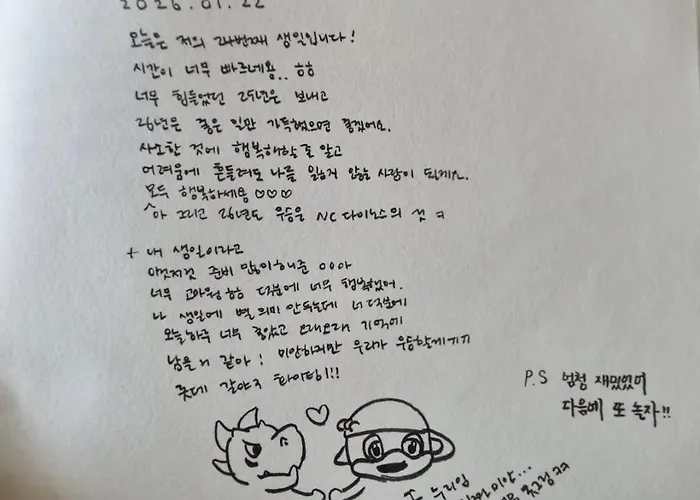 2026.01.22
오늘은 저의 24번째 생일입니다!
시간이 너무 빠르네용.. ㅎㅎ
너무 힘들었던 25년은 보내고
26년은 좋은 일만 가득했으면 좋겠어요.
사소한 것에 행복해할 줄 알고
어려움에 흔들려도 나를 잃하지 않는 사람이 되게..
모두 행복하세용 ♡♡♡
아 그리고 26년도 우승은 NC 다이노스의 것 ㅋ
+ 내 생일이라고
이것저것 준비 많이해준 ㅇㅇ아
너무 고마워 ㅎㅎ 덕분에 너무 행복했어.
나 생일에 별 의미 안두는데 너 덕분에
오늘하루 너무 좋았고 오래오래 기억에
남을 거 같아! 미안하지만 우리가 우승할게
굿데 갈야지 화이팅!!!
P.S 엄청 재밌었어
다음에 또 놀자!!
누리임
미안...